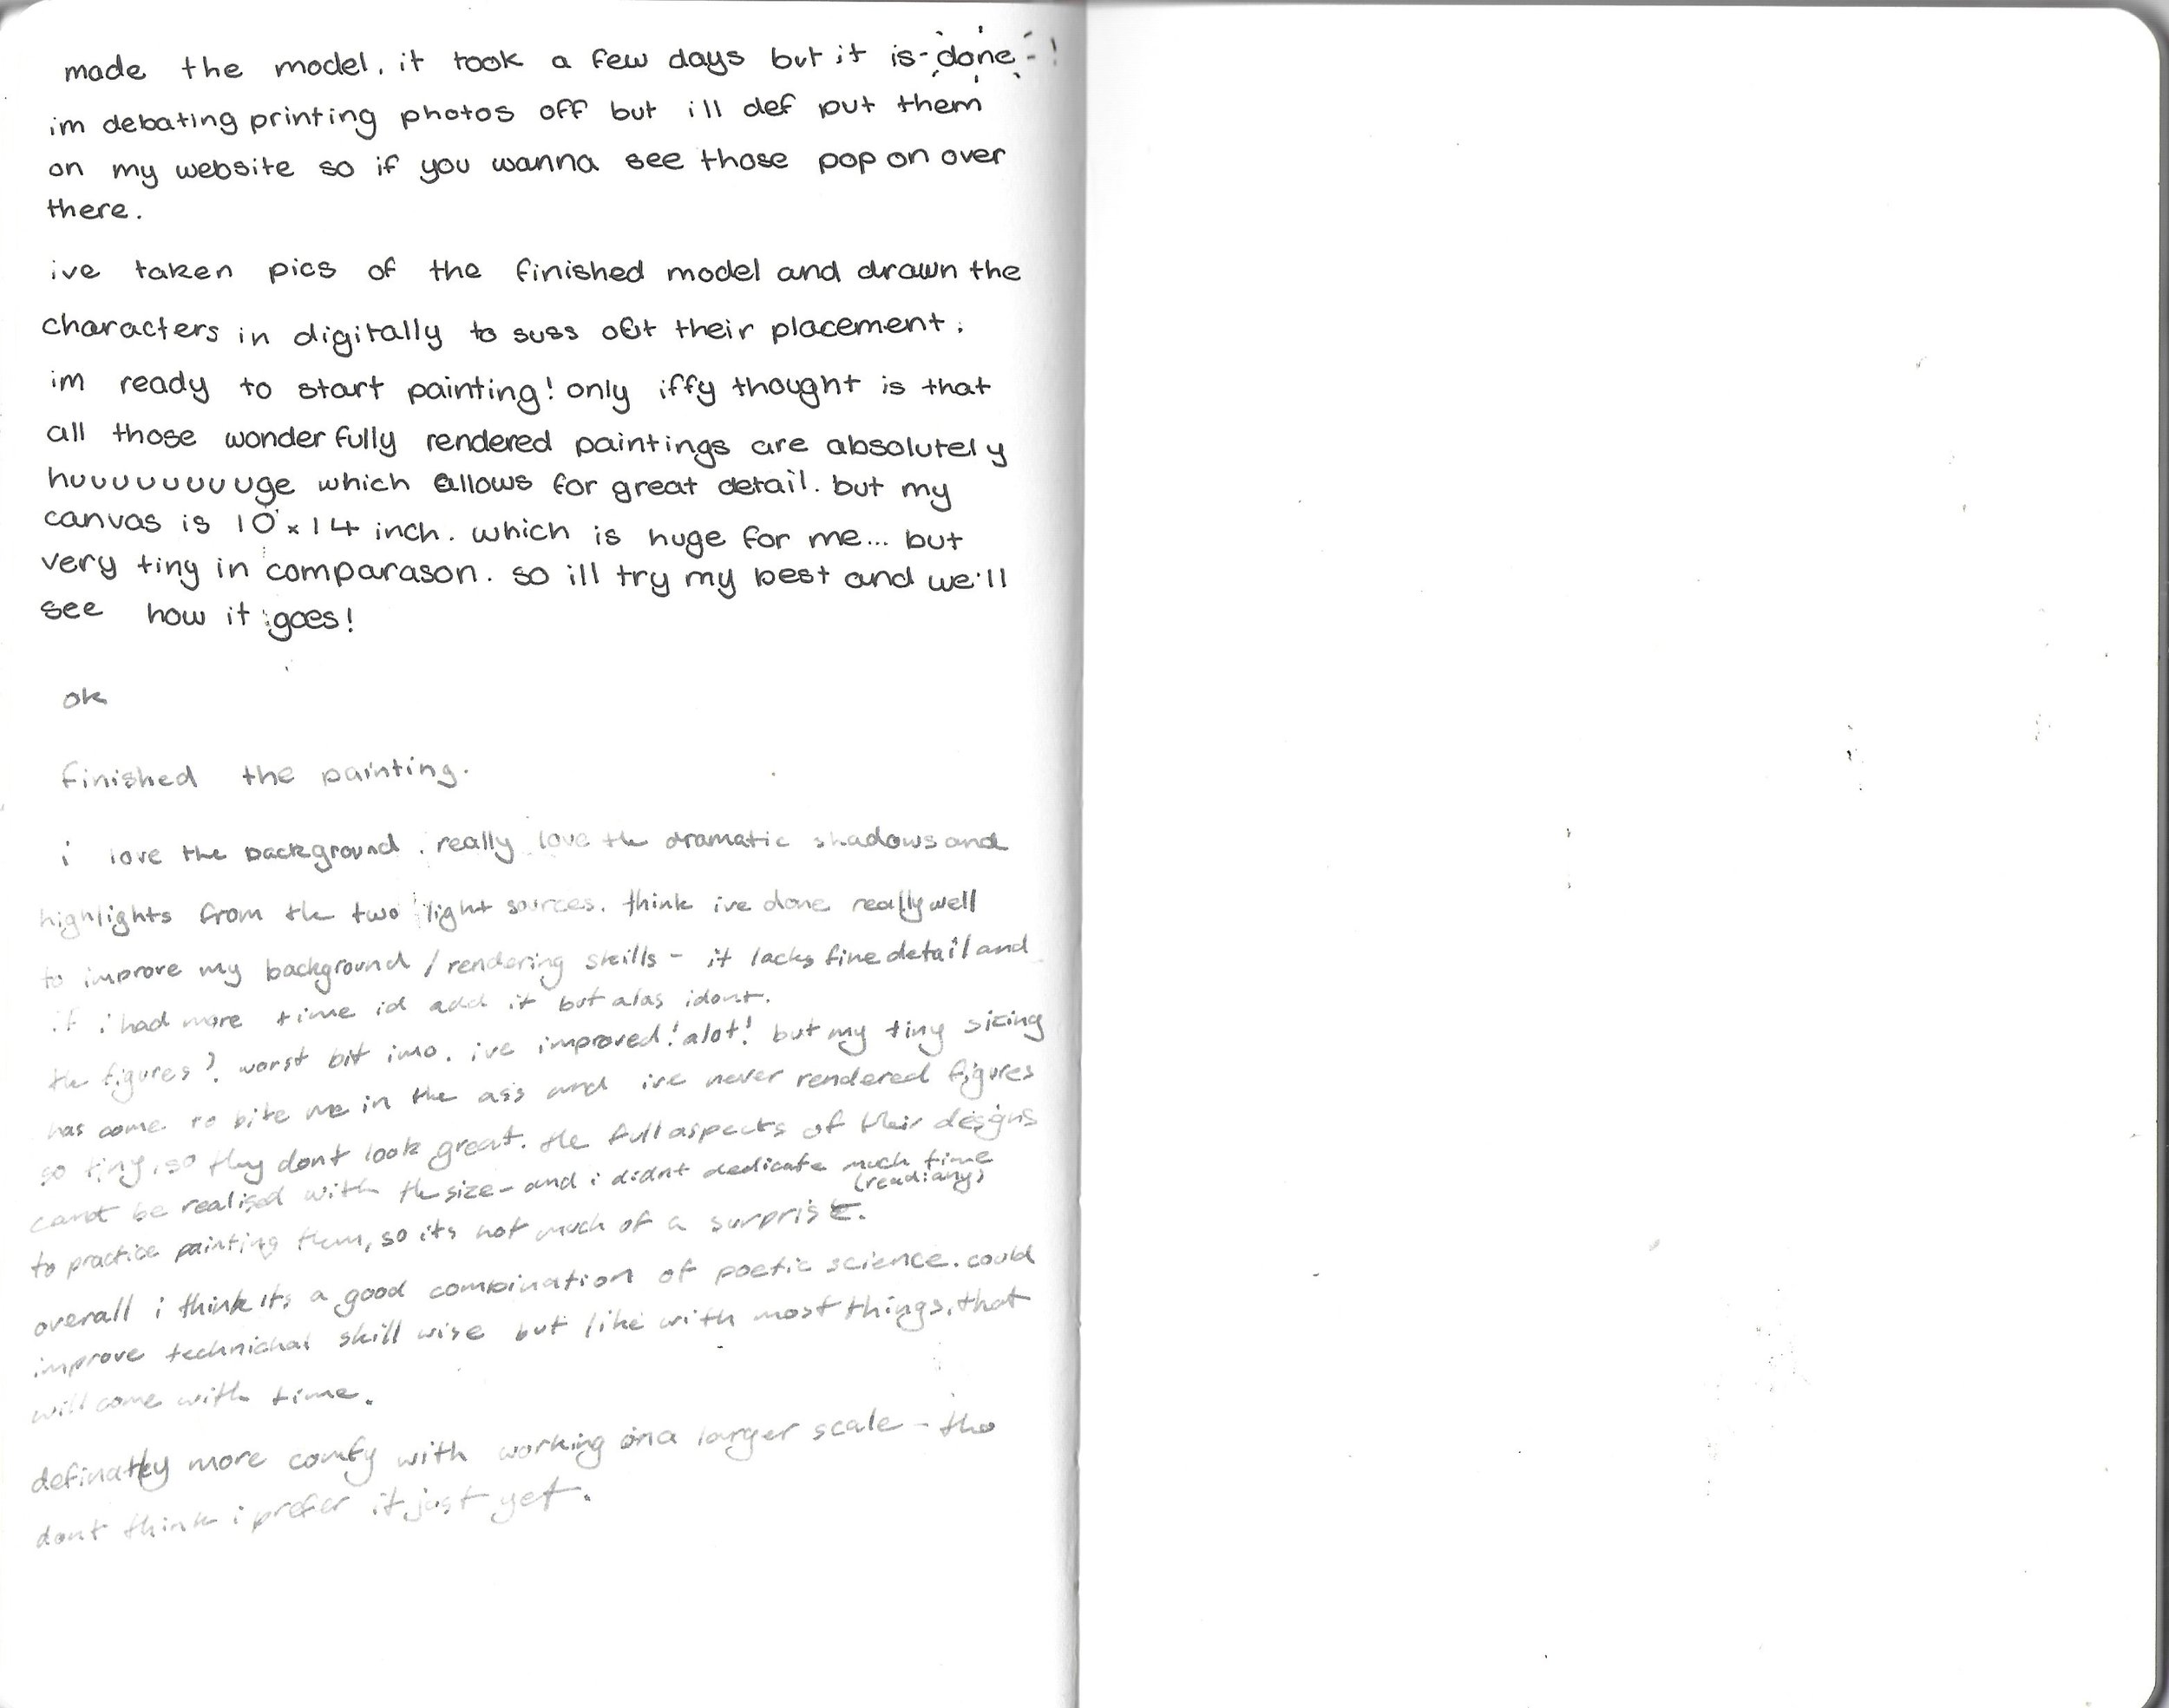 made the model. it took a few days but it is - done - !
im debating printing photos off but i'll def put them
on my website so if you wanna see those pop on over
there.
ive taken pics of the finished model and drawn the
characters in digitally to suss out their placement.
im ready to start painting! only iffy thought is that
all those wonderfully rendered paintings are absolutely
huuuuuuuuuge which allows for great detail. but my
canvas is 10 x 14 inch. which is huge for me... but
very tiny in comparason. so ill try my best and we'll
see how it goes!
ok
finished the painting.
i love the background. really love the dramatic shadows and
highlights from the two light sources. think ive done really well
to improve my background / rendering skills - it lacks fine detail and
if i had more time id add it but alas i dont.
the figures? worst bit imo. ive improved! alot! but my tiny sizing
has come to bite me in the ass and ive never rendered figures
so tiny, so they dont look great. the full aspects of their designs
cant be realised with the size - and i didnt dedicate much time
(read: any)
to practice painting them, so its not much of a surprise.
overall i think its a good combination of poetic science. could
improve technichal skill wise but like with most things, that
will come with time.
definatley more comfy with working on a larger scale - tho
dont think i prefer it just yet.